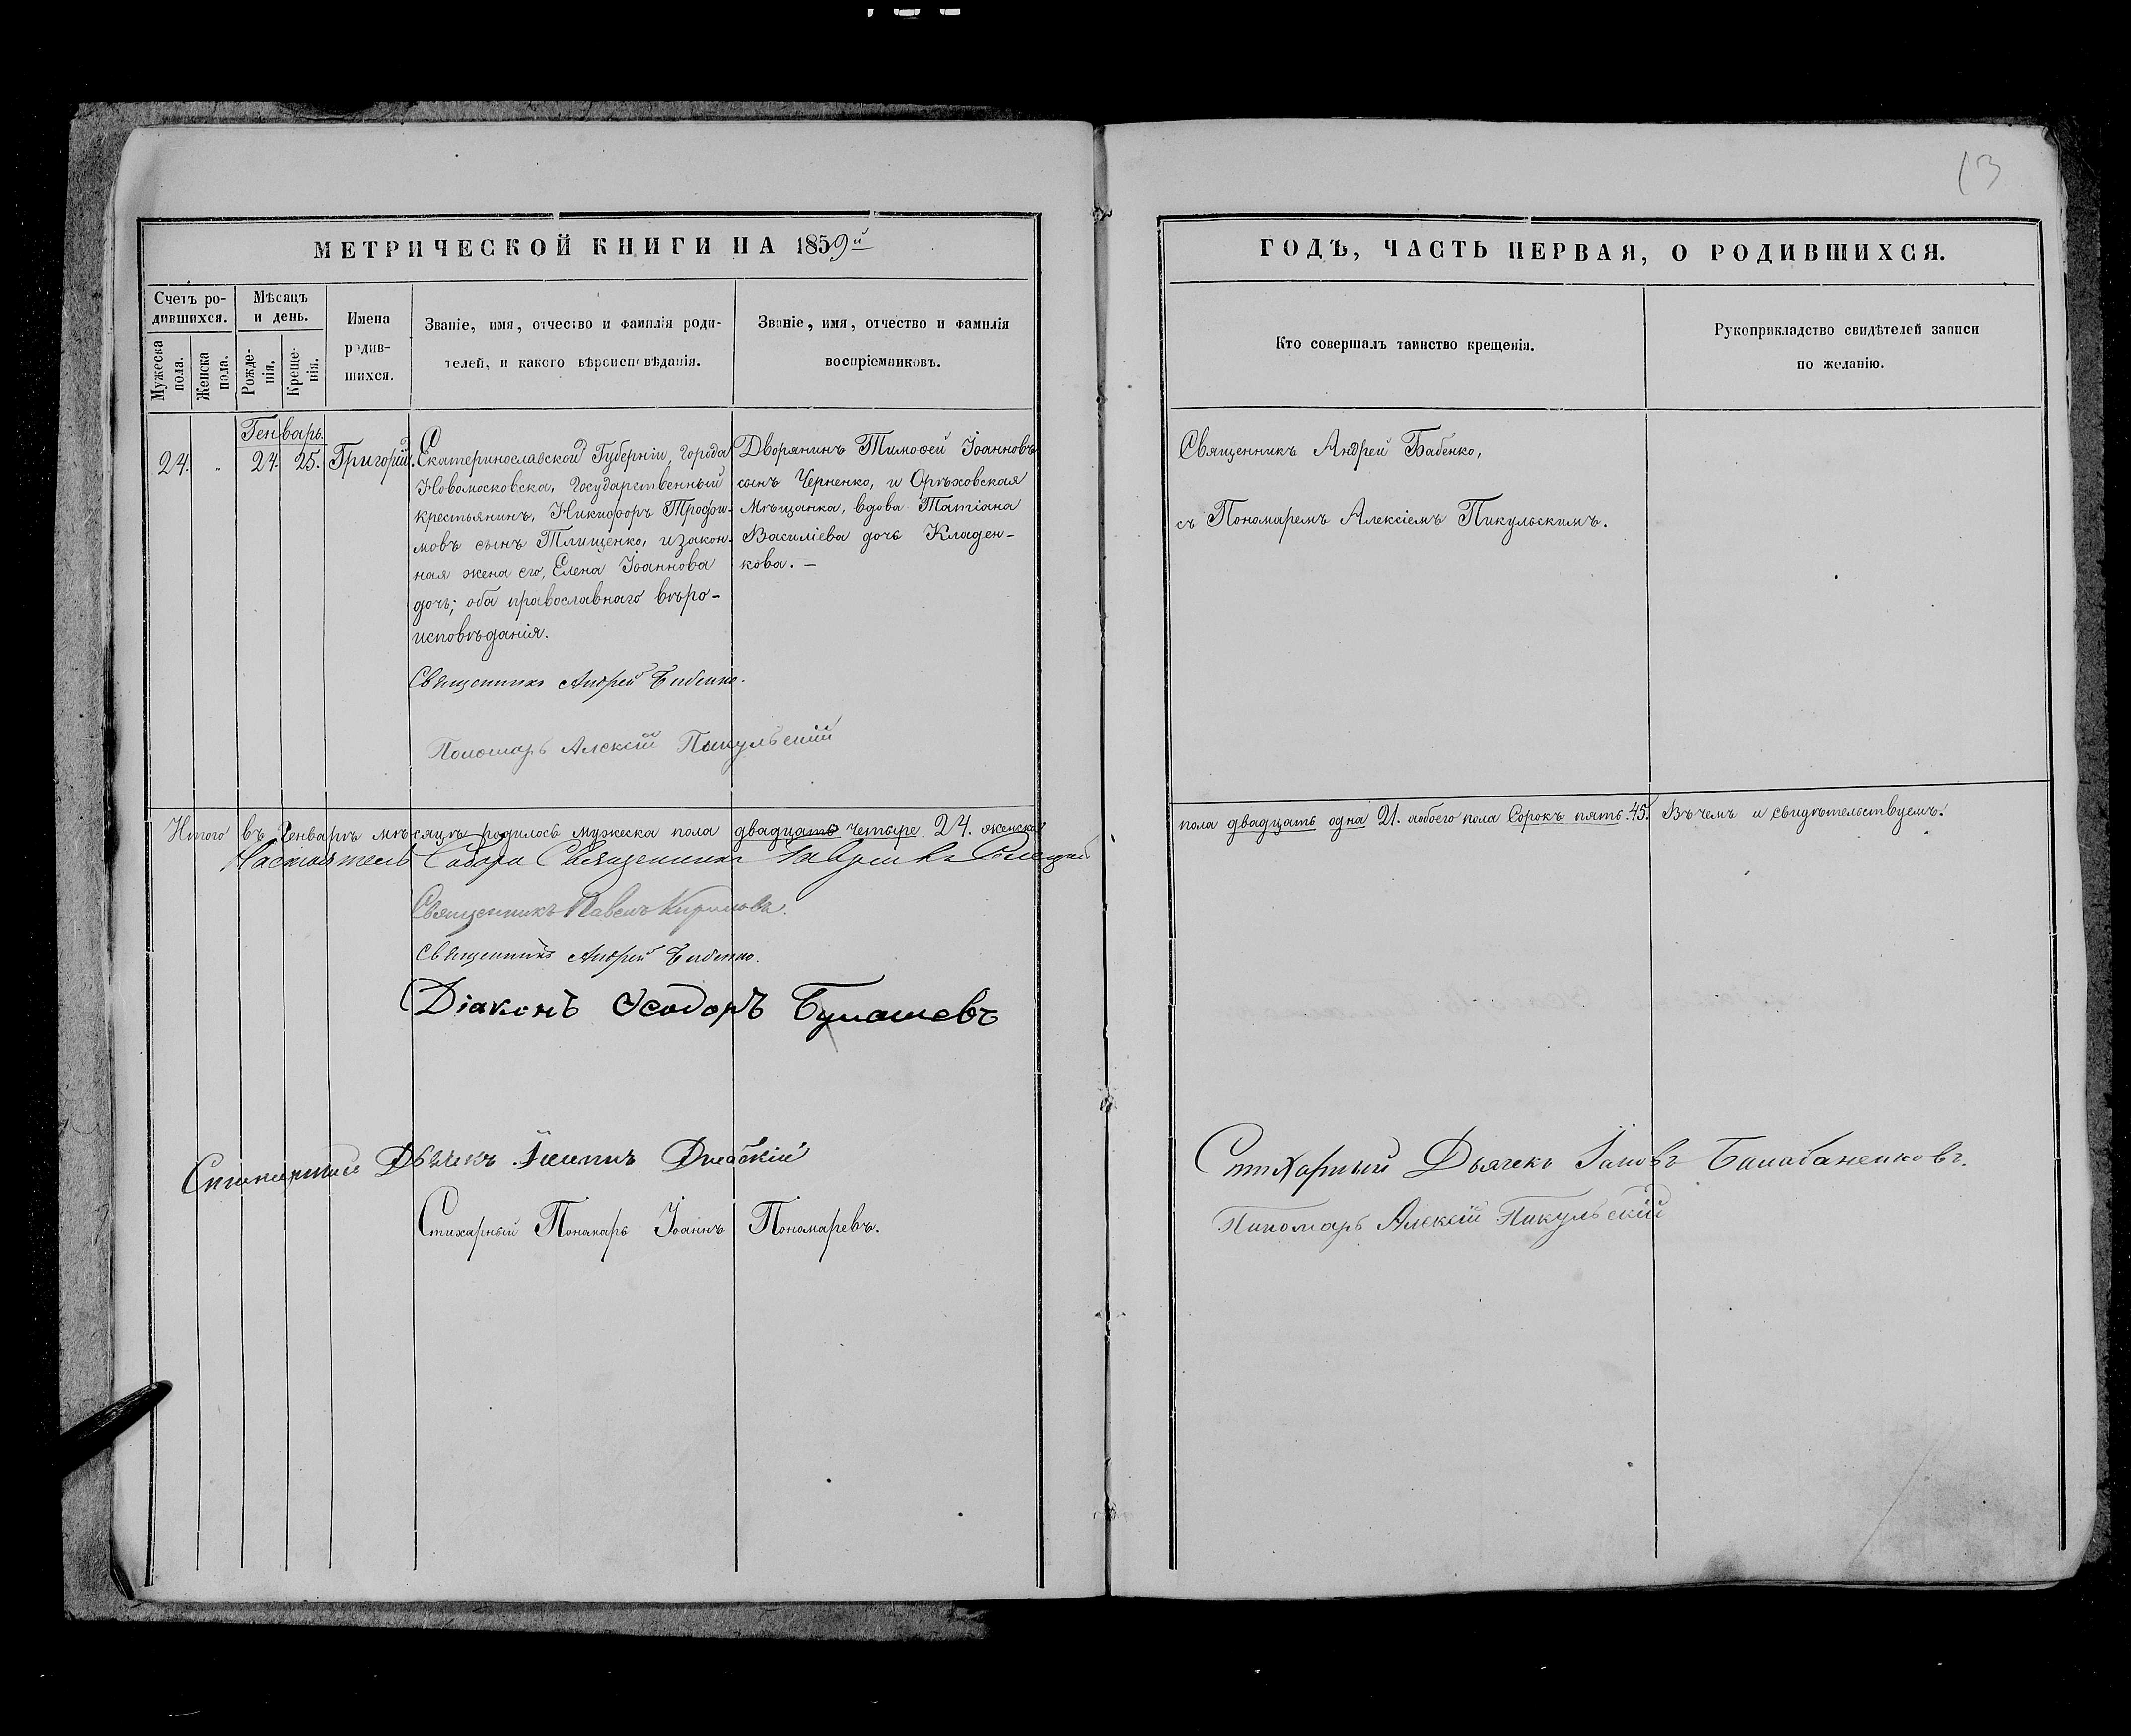 13
МЕТРИЧЕСКОЙ КНИГИ НА 1859й
ГОДЪ, ЧАСТЬ ПЕРВАЯ, О РОДИВШИХСЯ.
Счетъ ро-
дившихся.
Мужеска
пола.
Женска
пола.
Мѣсяцъ
и день.
Рожде-
нія.
Креще-
нія.
Имена
родив-
шихся.
Званіе, имя, отчество и фамилія роди-
телей, и какого вѣроисповѣданія.
Званіе, имя, отчество и фамилія
воспріемниковъ.
Кто совершалъ таинство крещенія.
Рукоприкладство свидѣтелей записи
по желанію.
Генварь.
24. „ 24. 25. Григорій.
Екатеринославской Губерніи, города
Новомосковска, Государственный
крестьянинъ, Никифоръ Трофи-
мовъ сынъ Тлищенко, и закон-
ная жена его, Елена Іоаннова
дочь; оба православнаго вѣро-
исповѣданія.
Дворянинъ Тимофей Іоанновъ
сынъ Черненко, и Орѣховская
Мѣщанка, вдова Татіана
Василіева дочь Кладен-
кова. —
Священникъ Андрей Бабенко,
съ Пономаремъ Алексіемъ Пикульскимъ.
Священникъ Андрей Бабенко.
Пономарь Алексій Пикульскій
Итого въ Генварѣ мѣсяцѣ родилось мужеска пола двадцать четыре. 24. женска
пола двадцать одна 21. а обоего пола Сорокъ пять. 45. Въ чемъ и свидѣтельствуемъ.
Настоятель Собора Священникъ
Священникъ Павелъ Кириловъ.
Священникъ Андрей Бабенко.
Діаконъ Ѳеодоръ Булашевъ
Стихарный Дьячекъ
Стихарный Пономарь Іоаннъ Пономаревъ.
Стихарный Дьячекъ Іаковъ Балабаненковъ.
Пономарь Алексій Пикульскій